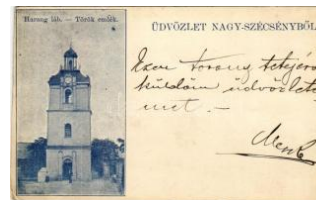 Harang láb. — Török emlék.
ÜDVÖZLET NAGY-SZÉCSÉNYBŐL
Ezen torony tetejéről
küldöm üdvözlete-
met. —